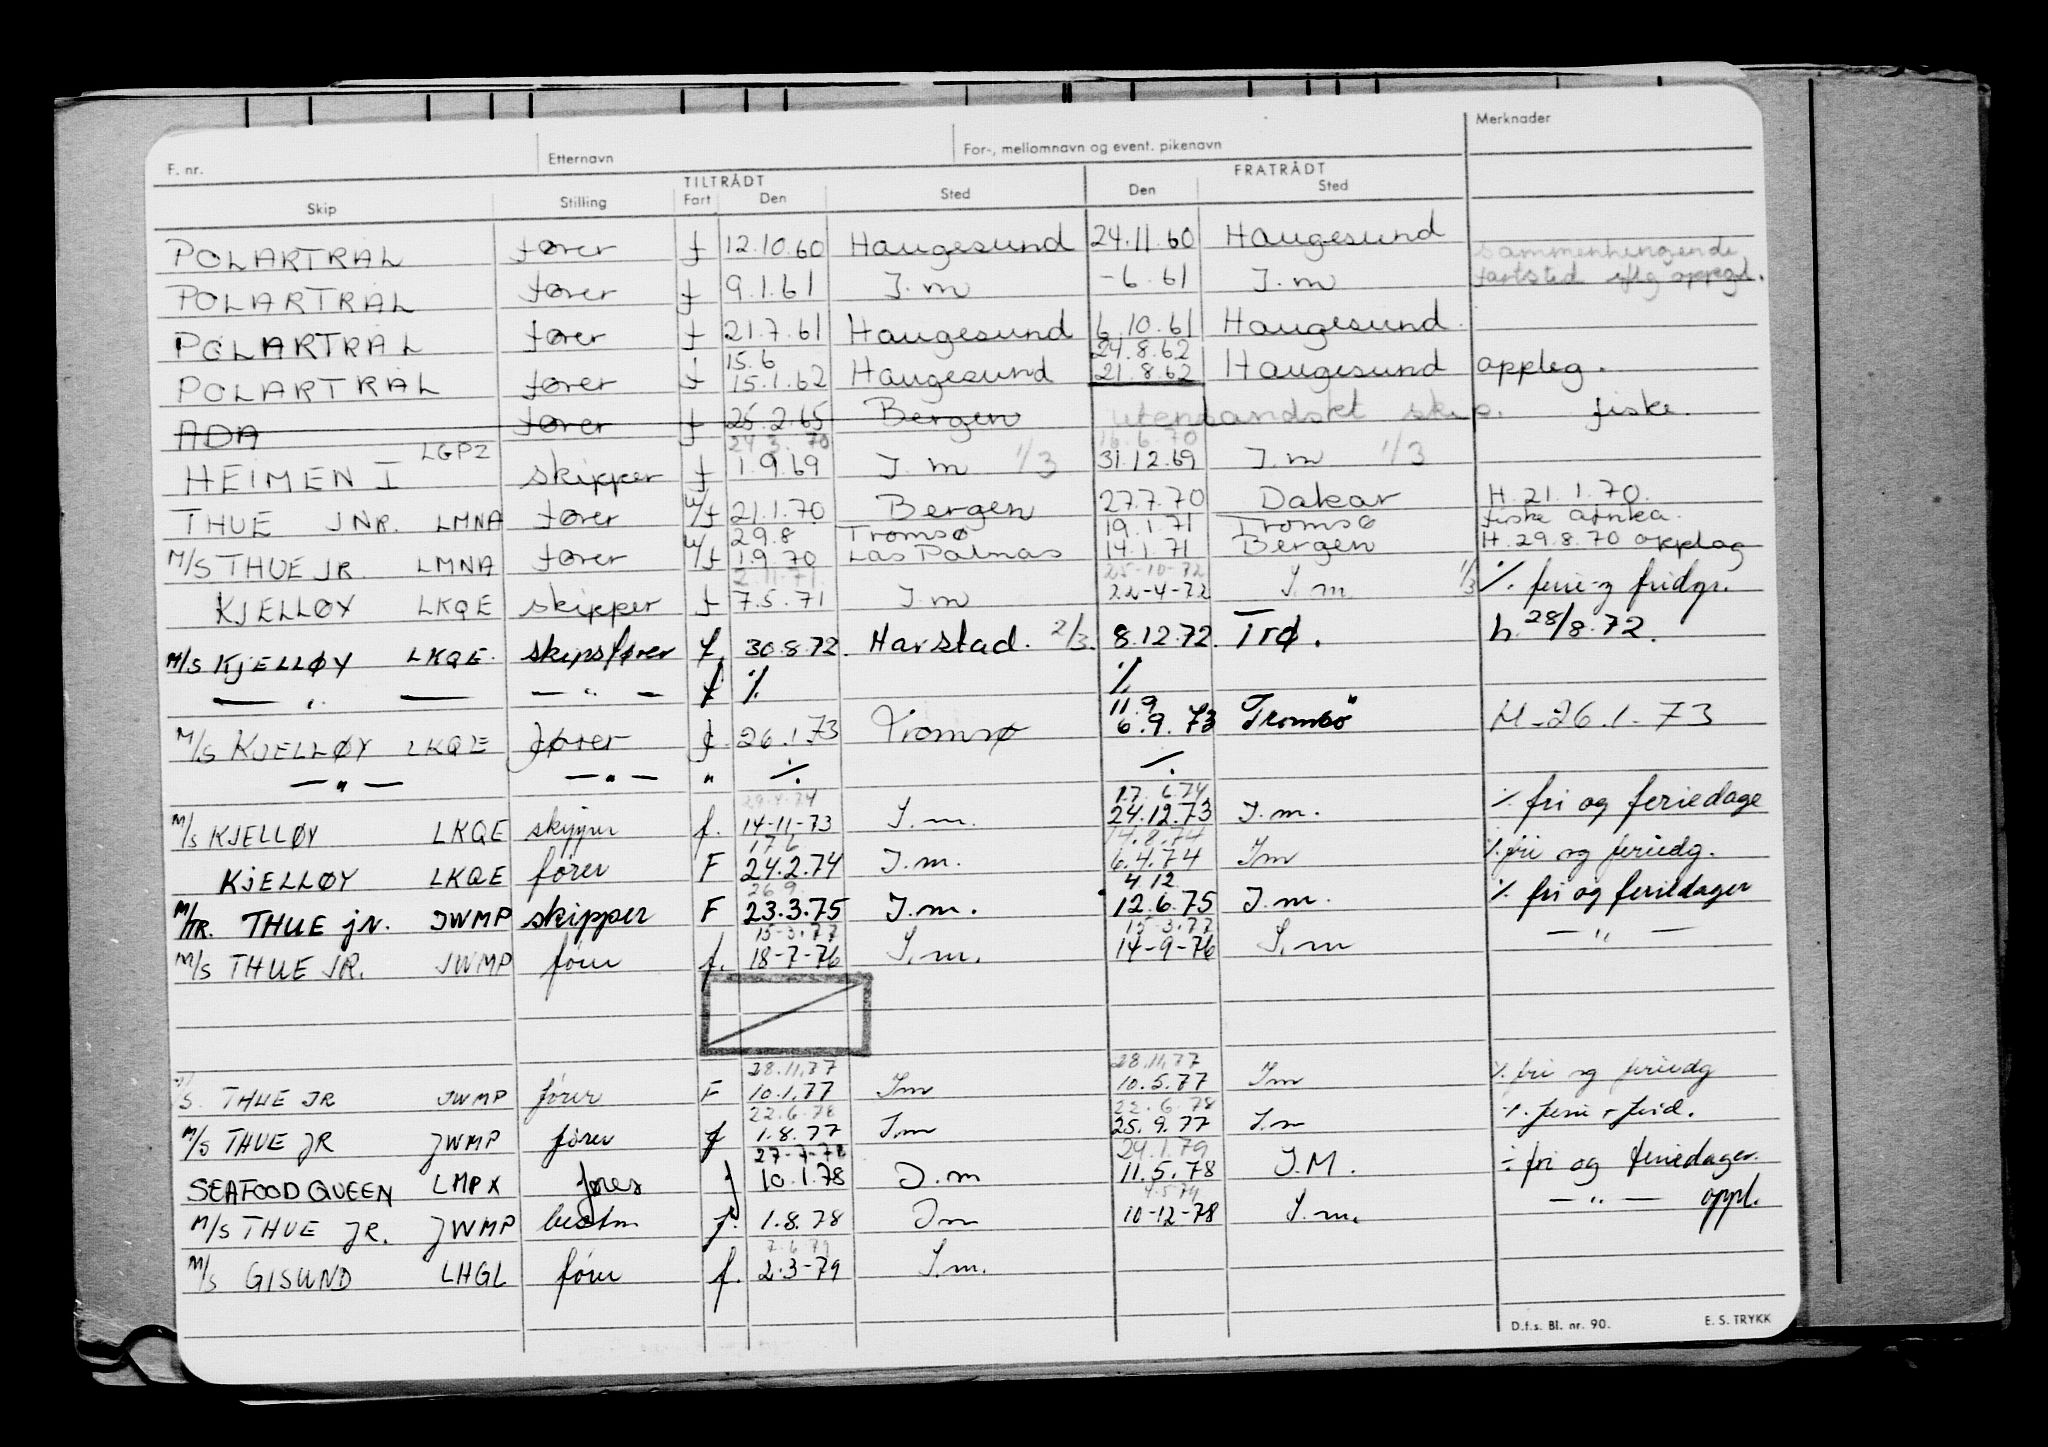 F. nr. Etternavn For-, mellomnavn og event. pikenavn Merknader
TILTRÅDT FRATRÅDT
Skip Stilling Fart Den Sted Den Sted
POLARTRÅL fører f 12.10.60 Haugesund 24.11.60 Haugesund sammenhengende
POLARTRÅL fører f 9.1.61 I.m -6.61 I.m fartstid iflg oppgd.
POLARTRÅL fører f 21.7.61 Haugesund 6.10.61 Haugesund
15.6 24.8.62
POLARTRÅL fører f 15.1.62 Haugesund 21.8.62 Haugesund oppleg.
ADA fører f 25.2.65 Bergen utenlandskt skip. fiske.
24.3.70 16.6.70
HEIMEN I LGPZ skipper f 1.9.69 I.m 1/3 31.12.69 I.m 1/3
THUE JNR. LMNA fører u/f 21.1.70 Bergen 27.7.70 Dakar H. 21.1.70.
29.8 Tromsø 19.1.71 Tromsø fiske afrika.
M/S THUE JR. LMNA fører u/f 1.9.70 Las Palmas 14.1.71 Bergen H. 29.8.70 opplag
2.11.71. 25-10-72
KJELLØY LKQE skipper f 7.5.71 I.m 22-4-72 I.m 1/3 ./. ferie og fridgr.
M/S KJELLØY LKQE. skipsfører f. 30.8.72. Harstad. 2/3. 8.12.72. Trø. h. 28/8.72.
— " — — " — f ./. ./.
11.9
M/S KJELLØY LKQE fører f. 26.1.73 Tromsø 6.9.73 Tromsö H-26.1-73
— " — — " — " ./. ./.
29.4.74 17.6.74
M/S KJELLØY LKQE skipper f. 14-11-73 I.m. 24.12.73 I.m. ./. fri og feriedage
17.6 14.8.74
KJELLØY LKQE fører F 24.2.74 I.m. 6.4.74 Im ./. fri og feriedg.
26.9. 4.12
M/TR. THUE jr. JWMP skipper F 23.3.75 I.m. 12.6.75 I.m. ./. fri og feriedager
15-3.77 15-3.77
M/S THUE JR. JWMP fører f. 18-7-76 I.m. 14-9-76 I.m — " —
28.11.77 28.11.77
S. THUE JR JWMP fører F 10.1.77 Im 10.5.77 Im ./. fri og feriedg
22.6.78 22.6.78
M/S THUE JR JWMP fører f 1.8.77 I.m 25.9.77 I.m ./. ferie + frid.
27-7-78 24.1.79
SEAFOOD QUEEN LMPX fører f 10.1.78 I.m 11.5.78 I.M. ÷ fri og feriedager.
4.5.79
M/S THUE JR. JWMP bestm f. 1.8.78 Im 10-12-78 I.m. — " — oppl.
7.6.79
M/S GISUND LHGL fører f. 2.3-79 I.m.
D.f.s. Bl. nr. 90. E. S. TRYKK